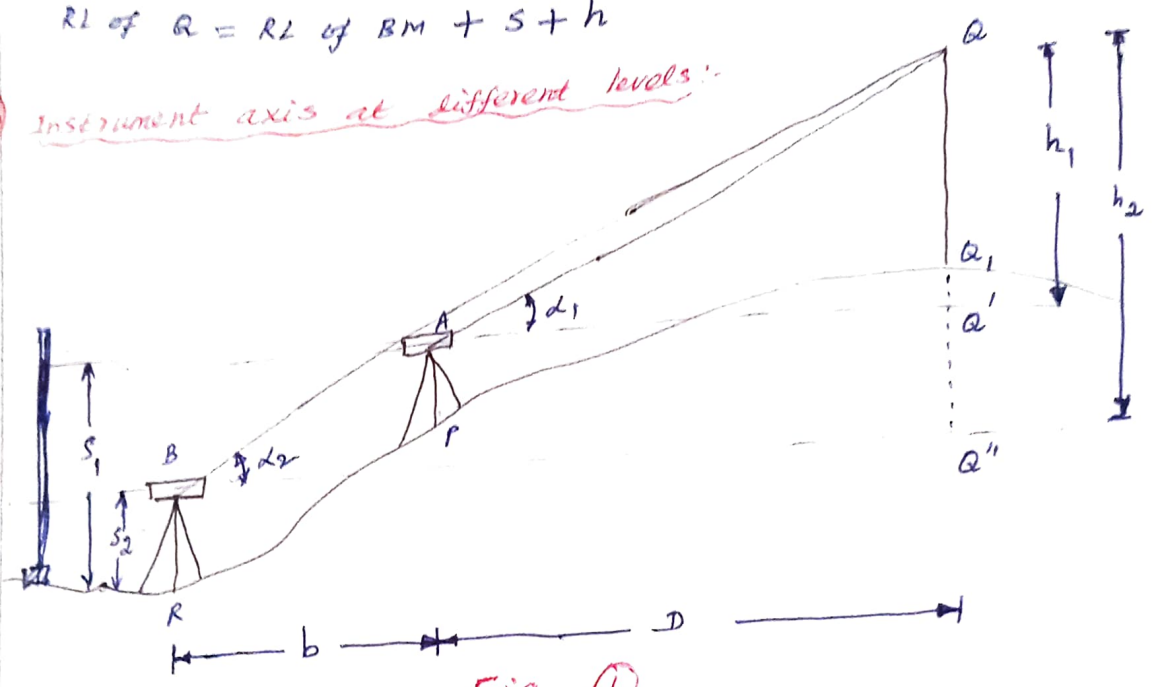 RL of Q = RL of BM + S + h
Instrument axis at different levels:-
Q
h₁
h₂
Q₁
A
α₁
Q'
S₁
P
B
α₂
Q"
S₂
R
b
D
Fig. ①